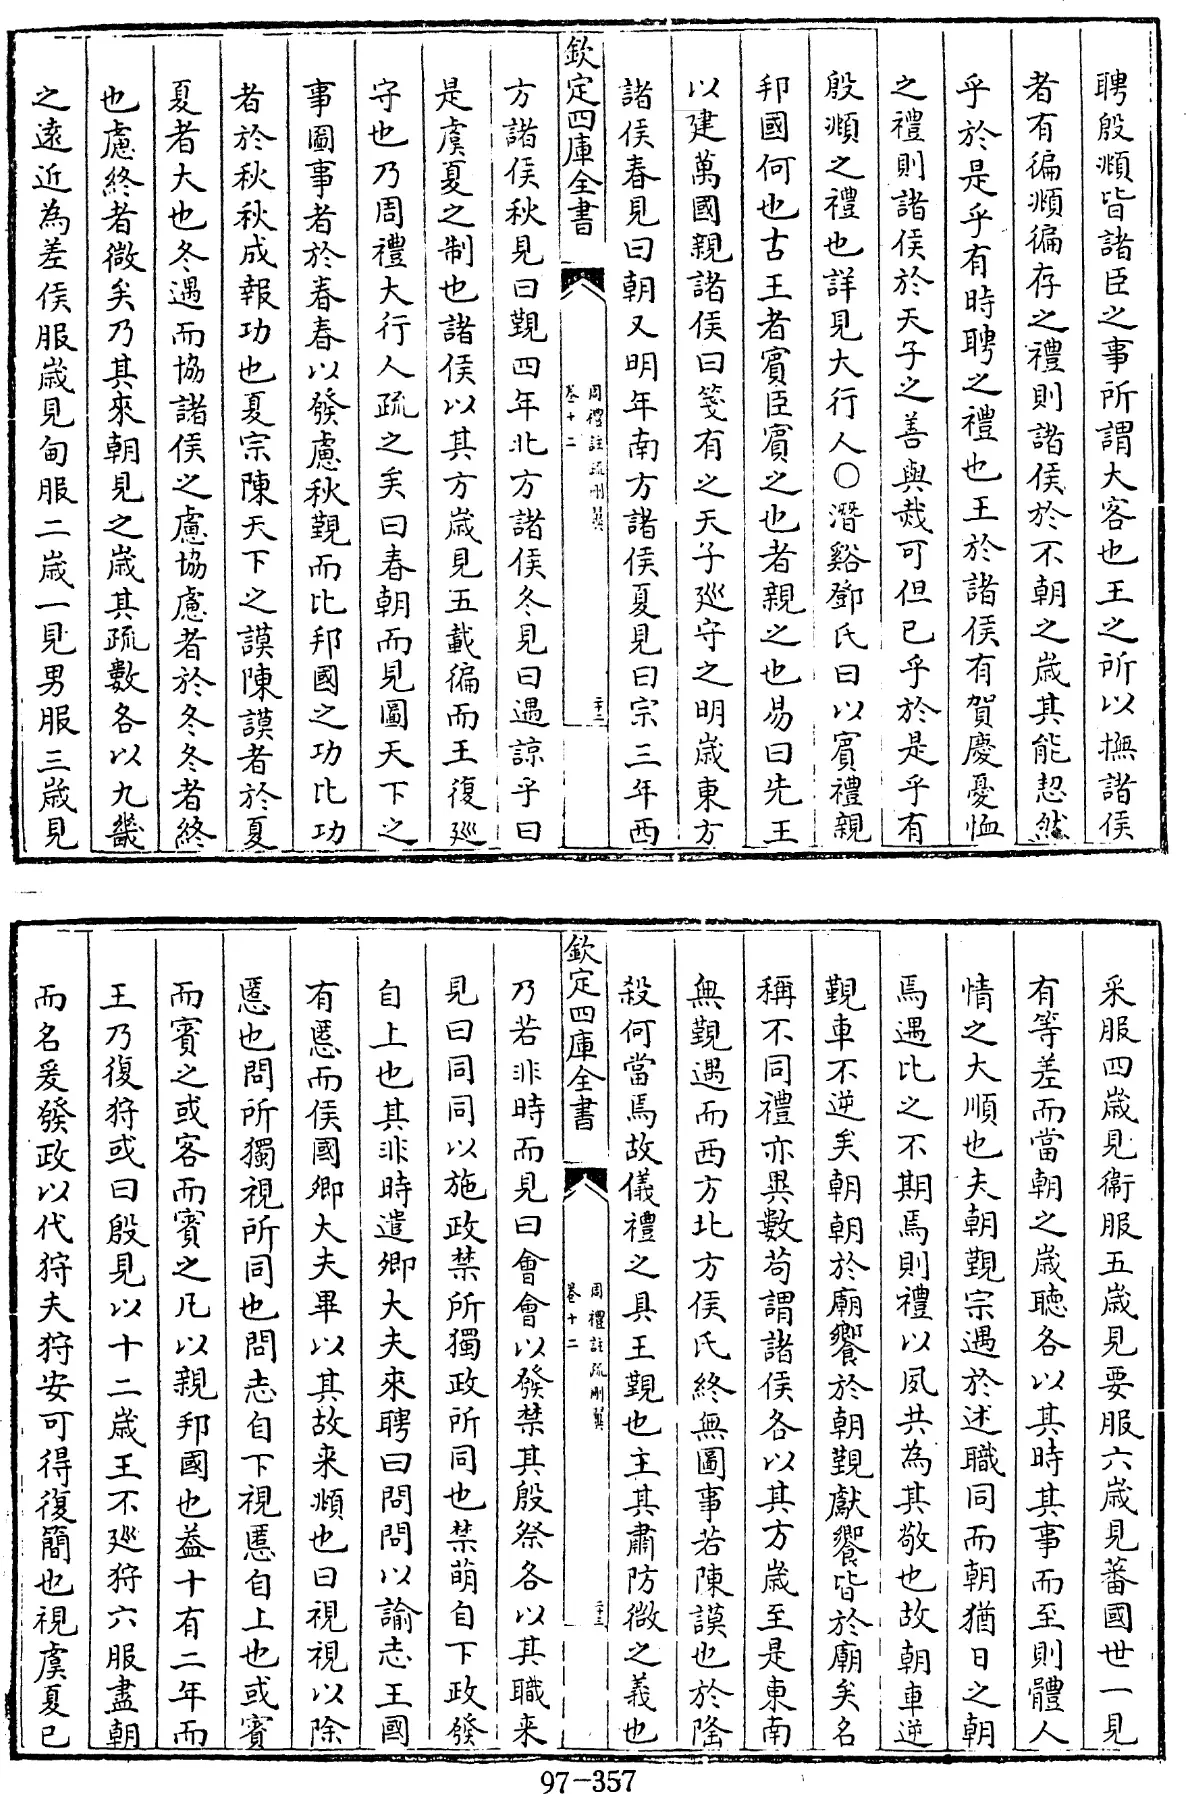 聘殷頫皆諸臣之事所謂大客也王之所以撫諸侯
者有徧頫徧存之禮則諸侯於不朝之歲其能恝然
乎於是乎有時聘之禮也王於諸侯有賀慶憂恤
之禮則諸侯於天子之善與烖可但已乎於是乎有
殷頫之禮也詳見大行人○潛谿鄧氏曰以賓禮親
邦國何也古王者賓臣賓之也者親之也易曰先王
以建萬國親諸侯曰箋有之天子廵守之明歲東方
諸侯春見曰朝又明年南方諸侯夏見曰宗三年西
欽定四庫全書
周禮註疏刪翼
卷十二
二十二
方諸侯秋見曰覲四年北方諸侯冬見曰遇諒乎曰
是虞夏之制也諸侯以其方歲見五載徧而王復廵
守也乃周禮大行人疏之矣曰春朝而見圖天下之
事圖事者於春春以發慮秋覲而比邦國之功比功
者於秋秋成報功也夏宗陳天下之謨陳謨者於夏
夏者大也冬遇而協諸侯之慮協慮者於冬冬者終
也慮終者微矣乃其來朝見之歲其疏數各以九畿
之遠近為差侯服歲見甸服二歲一見男服三歲見
采服四歲見衞服五歲見要服六歲見蕃國世一見
有等差而當朝之歲聽各以其時其事而至則體人
情之大順也夫朝覲宗遇於述職同而朝猶日之朝
焉遇比之不期焉則禮以夙共為其敬也故朝車逆
覲車不逆矣朝朝於廟饗於朝覲獻饗皆於廟矣名
稱不同禮亦異數苟謂諸侯各以其方歲至是東南
無覲遇而西方北方侯氏終無圖事若陳謨也於隆
殺何當焉故儀禮之具王覲也主其肅防微之義也
欽定四庫全書
周禮註疏刪翼
卷十二
二十三
乃若非時而見曰會會以發禁其殷祭各以其職来
見曰同同以施政禁所獨政所同也禁萌自下政發
自上也其非時遣卿大夫來聘曰問問以諭志王國
有慝而侯國卿大夫畢以其故来頫也曰視視以除
慝也問所獨視所同也問志自下視慝自上也或賓
而賓之或客而賓之凡以親邦國也葢十有二年而
王乃復狩或曰殷見以十二歲王不廵狩六服盡朝
而名爰發政以代狩夫狩安可得復簡也視虞夏已
97-357